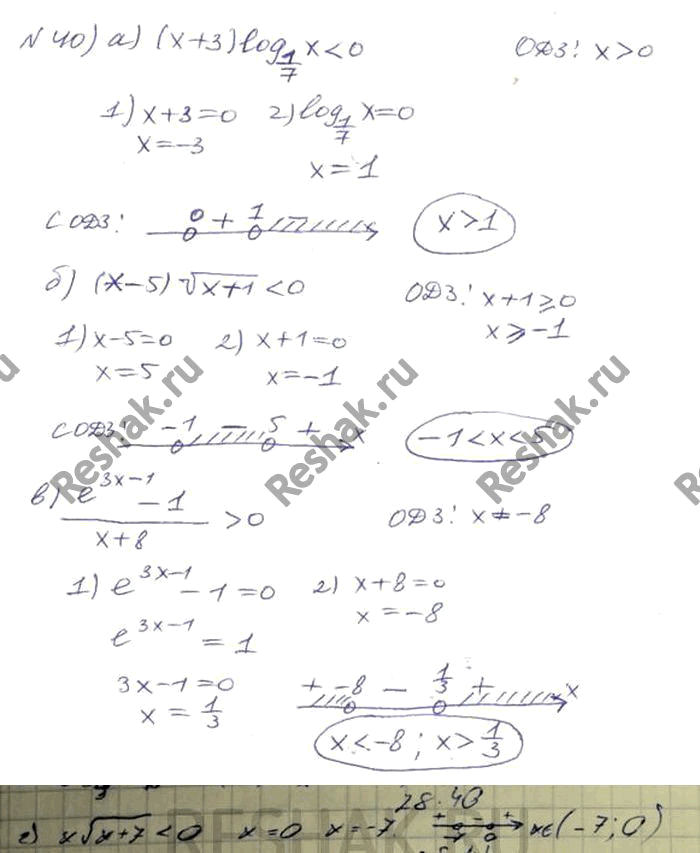 N 40) а) (x+3)log_{1/7} x<0 ОДЗ: x>0
1) x+3=0 2) log_{1/7} x=0
x=-3
x=1
С ОДЗ: 0 + 1 - x>1
б) (x-5)√x+1 <0 ОДЗ: x+1⩾0
x⩾-1
1) x-5=0 2) x+1=0
x=5 x=-1
С ОДЗ: -1 - 5 + x -1<x<5
в) \frac{e^{3x-1} -1}{x+8} >0 ОДЗ: x≠-8
1) e^{3x-1} -1=0 2) x+8=0
x=-8
e^{3x-1} =1
3x-1=0 + -8 - 1/3 + x
x=1/3
x<-8; x>1/3
28.40
г) x√x+7 <0 x=0 x=-7 + - + x∈(-7;0)
Reshak.ru
Reshak.ru
Reshak.ru
RESHAK.RU